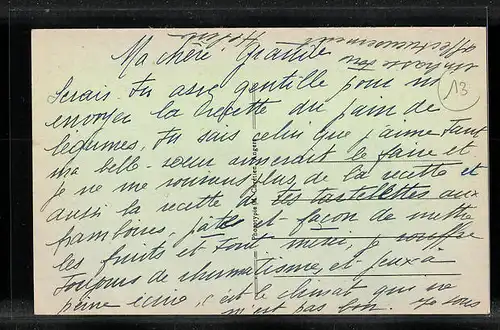 Ma chère
Serais-tu assez gentille pour m'
envoyer la recette du pain de
légumes, tu sais celui que j'aime tant
ma belle-sœur aimerait le faire et
je ne me souviens plus de la recette et
aussi la recette de tes tartelettes aux
framboises, pâte et façon de mettre
les fruits et tout merci, je souffre
toujours de rhumatisme, et peux à
peine écrire, c'est le climat qui ne
m'est pas bon. Je vous
embrasse
affectueusement
13